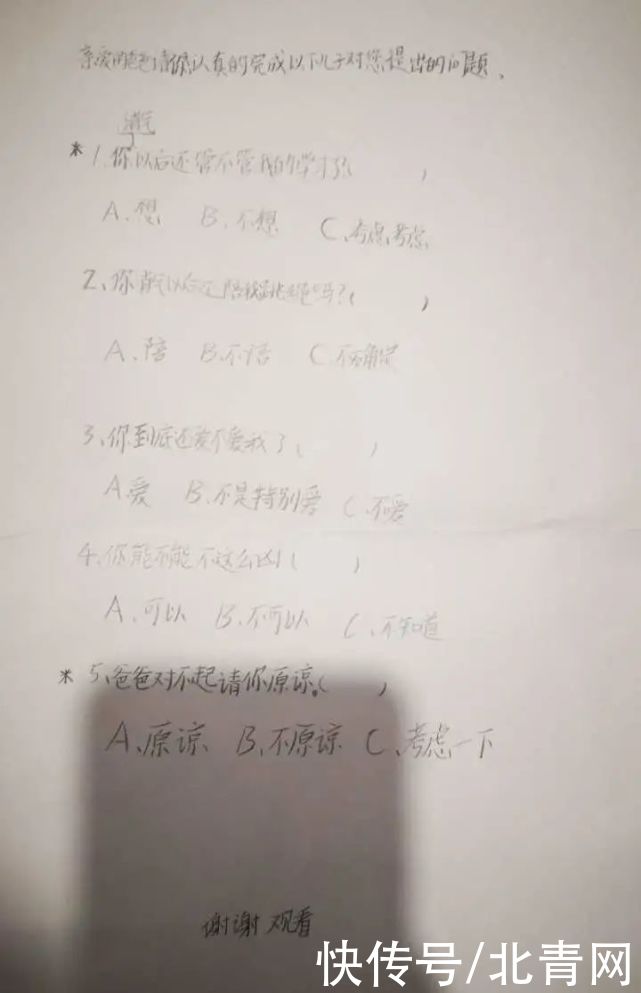 亲爱的爸爸请你认真的完成以下儿子对您提出的问题、
*1、你以后还管不管我的学习了(   )
A、想 B、不想 C、考虑考虑
2、你以后还陪我跳绳吗?(   )
A、陪 B、不陪 C、不确定
3、你到底还爱不爱我了、(   )
A、爱 B、不是特别爱 C、不爱
4、你能不能不这么凶(   )
A、可以 B、不可以 C、不知道
*5、爸爸对不起请你原谅。(   )
A、原谅、 B、不原谅、 C、考虑一下
谢谢观看
快传号/北青网